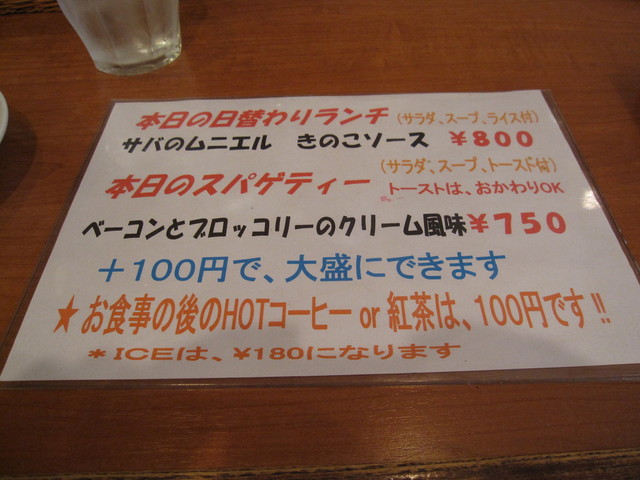 本日の日替わりランチ (サラダ、スープ、ライス付)
サバのムニエル きのこソース ¥800
(サラダ、スープ、トースト付)
本日のスパゲティー トーストは、おかわりOK
ベーコンとブロッコリーのクリーム風味¥750
+100円で、大盛にできます
★お食事の後のHOTコーヒー or 紅茶は、100円です!!
*ICEは、¥180になります